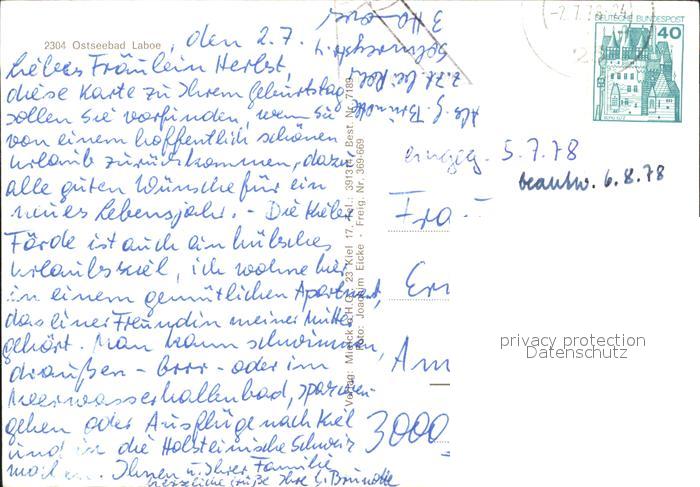 2304 Ostseebad Laboe, den 2.7.
Liebes Fräulein Herbst,
diese Karte zu Ihrem Geburtstag
sollen Sie vorfinden, wenn Sie
von einem hoffentlich schönen
Urlaub zurückkommen, dazu
alle guten Wünsche für ein
neues Lebensjahr. - Die Kieler
Förde ist auch ein hübsches
Urlaubsziel, ich wohne hier
in einem gemütlichen Apartment,
das einer Freundin meiner Mutter
gehört. Man kann schwimmen,
draußen - brrr - oder im
Meerwasserhallenbad, spazieren-
gehen oder Ausflüge nach Kiel
und in die Holsteinische Schweiz
machen. Ihnen u. Ihrer Familie
herzliche Grüße Ihre G. Brunotte
Abs. G. Brunotte
z. Zt. bei
3
DEUTSCHE BUNDESPOST
40
BURG ELTZ
eingeg. 5.7.78
beantw. 6.8.78
Fra
Ern
Am
3000
23 Kiel 17, Tel.: 3913 Best. Nr. 7189
Foto: Joachim Eicke - Freig. Nr. 369-669
privacy protection
Datenschutz